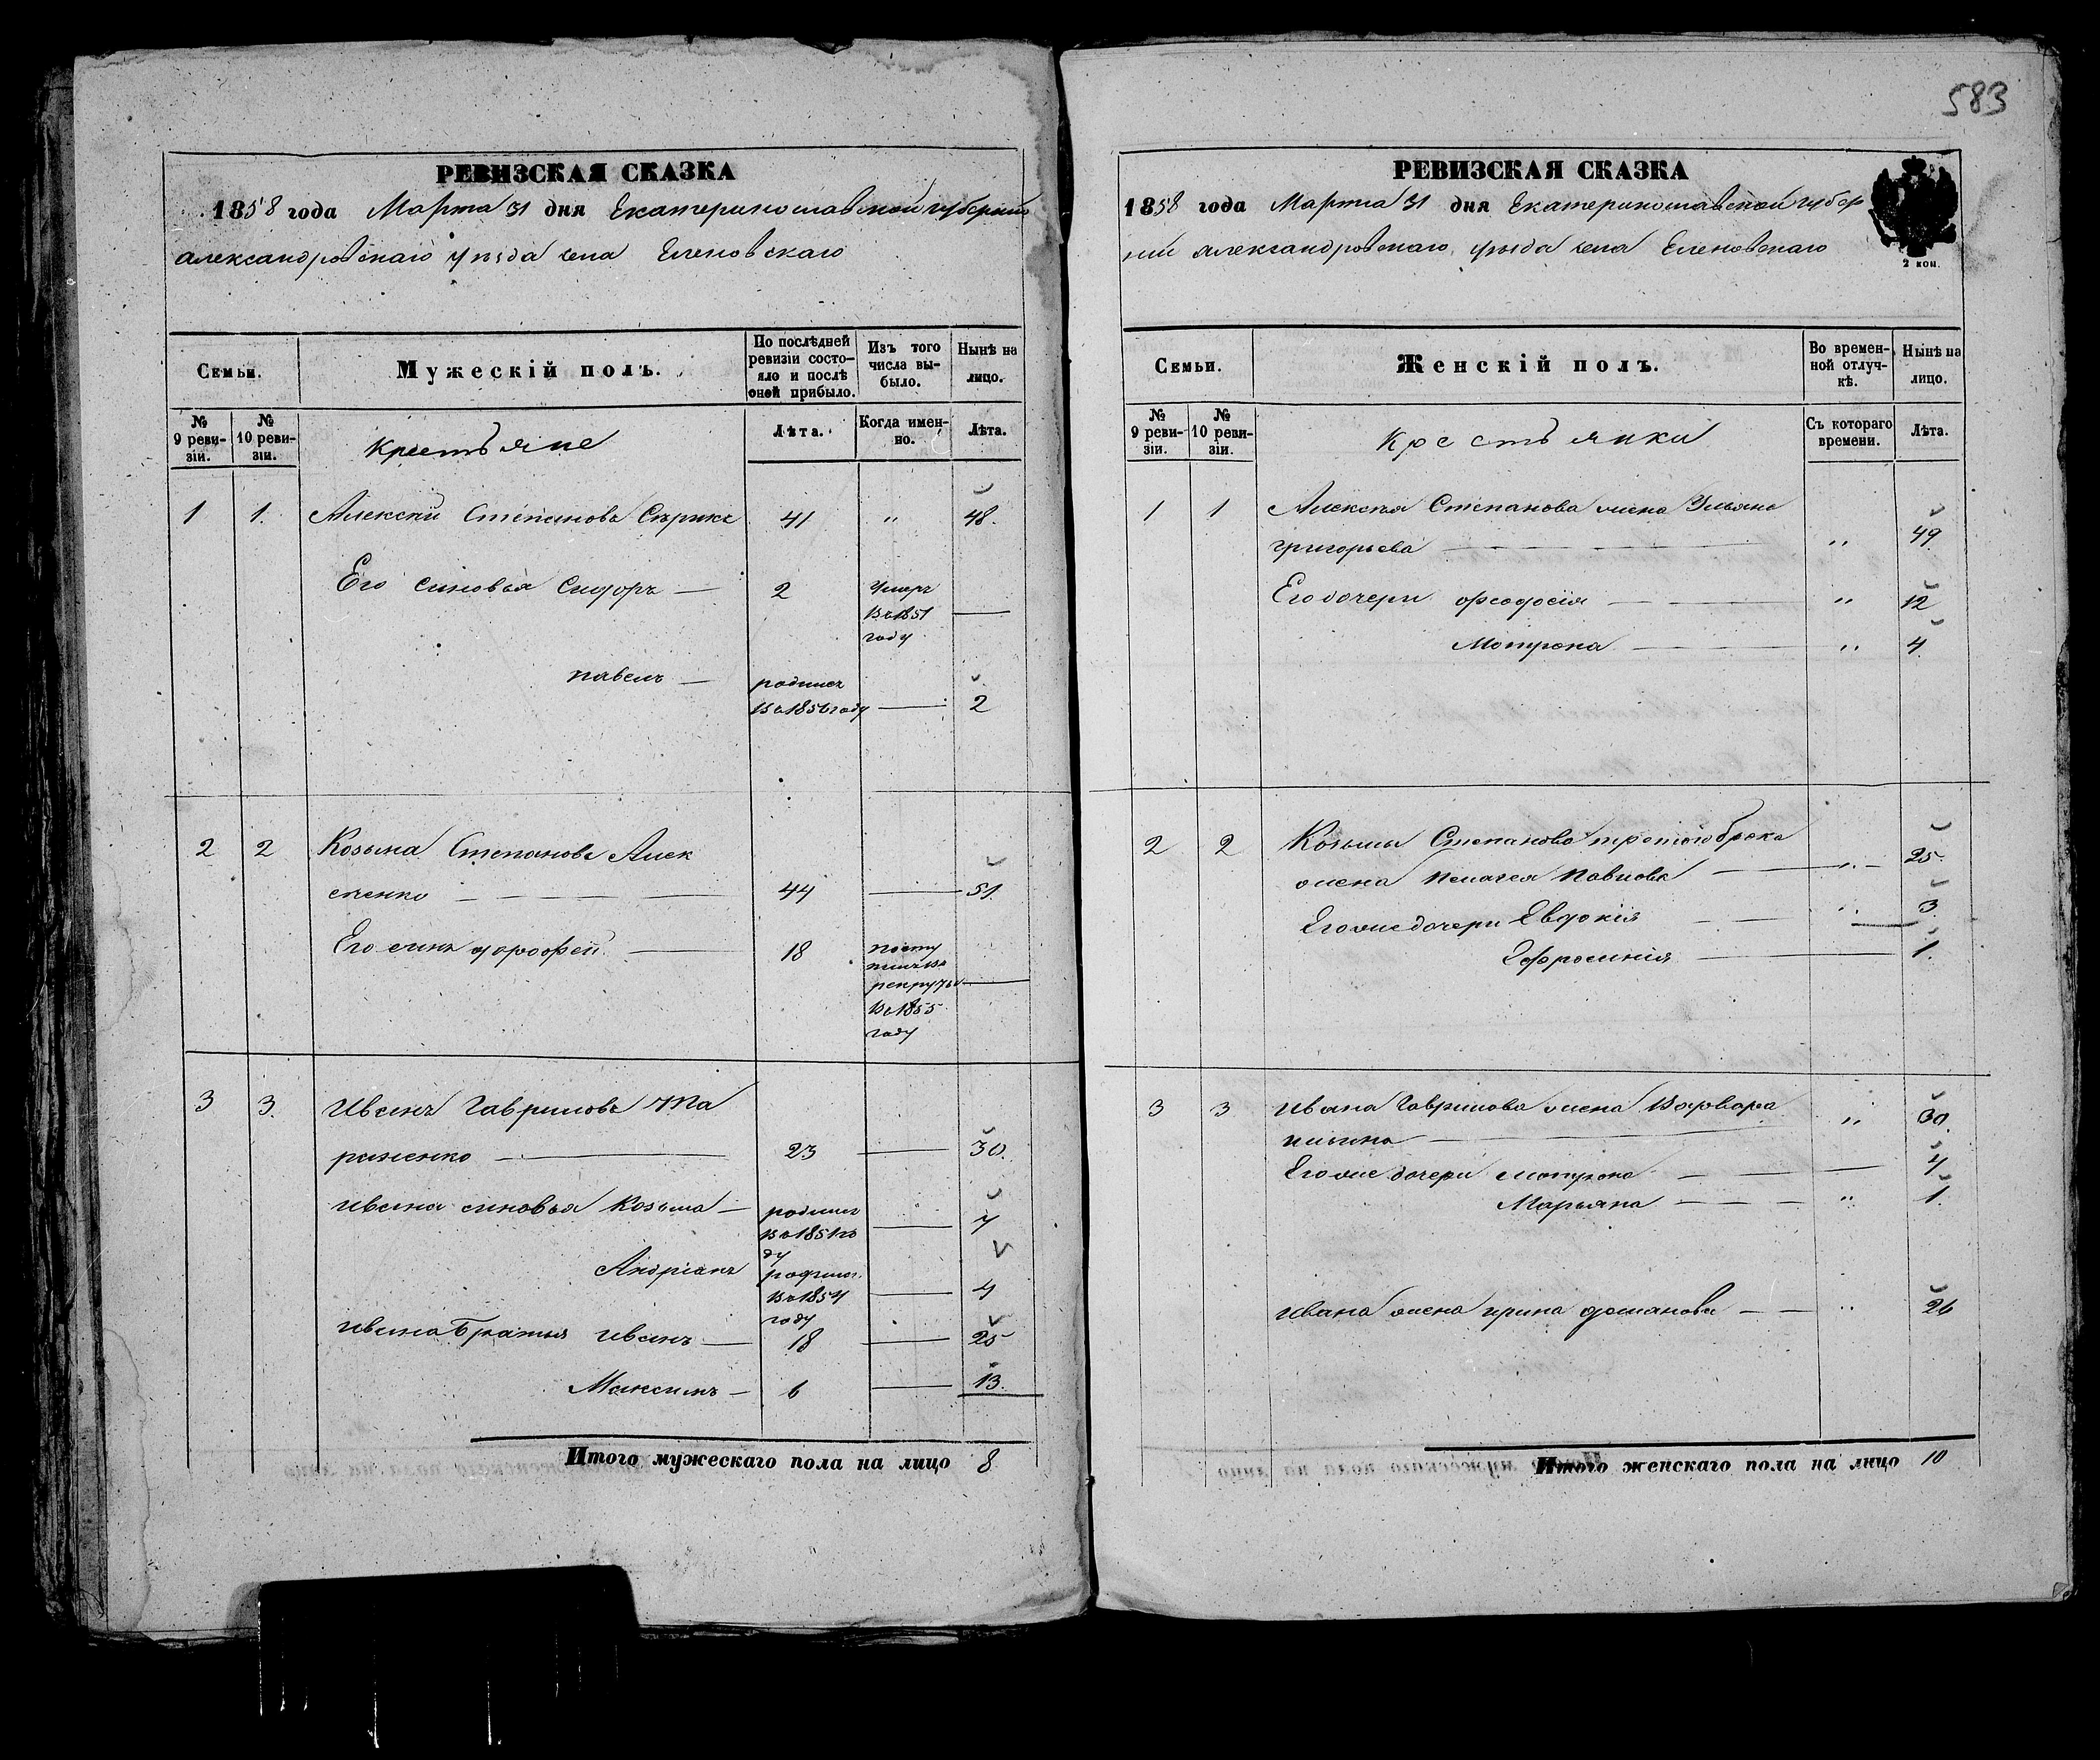 583
РЕВИЗСКАЯ СКАЗКА
1858 года Марта 31 дня Екатеринославской губерніи
александровскаго уѣзда села Еленовскаго
Семьи.
Мужескій полъ.
По послѣдней ревизіи состояло и послѣ оной прибыло.
Изъ того числа выбыло.
Нынѣ на лицо.
№ 9 ревизіи.
№ 10 ревизіи.
крестьяне
Лѣта.
Когда именно.
Лѣта.
1 1. Алексѣй Степановъ Сѣрикъ 41 " 48.
Его синовья Сидоръ — 2 Умеръ
въ 1851 —
году
павелъ — родился
въ 1856 году — 2
2 2 Козьма Степановъ Алек
сѣенко — 44 — 51.
Его синъ дорофей — 18 посту
пилъ въ
рекруты —
въ 1855
году
3 3. Иванъ Гавриловъ
— 23 — 30.
ивана синовья Козьма — родился
въ 1851 го — 7
ду
Андріанъ родился
въ 1854 — 4
году
ивана братья иванъ — 18 — 25
Максимъ — 6 — 13.
Итого мужескаго пола на лицо 8
РЕВИЗСКАЯ СКАЗКА
1858 года Марта 31 дня Екатеринославской губер
ніи александровскаго уѣзда села Еленовскаго
2 коп.
Семьи.
Женскій полъ.
Во временной отлучкѣ.
Нынѣ на лицо.
№ 9 ревизіи.
№ 10 ревизіи.
Крестьянки
Съ котораго времени.
Лѣта.
1 1 Алексѣя Степанова жена Ульяна
григорьева — " 49.
Его дочери феодосія — " 12
Мотрона — " 4.
2 2 Козьмы Степанова третого брака
жена Пелагея Павлова — " — 25.
Его же дочери Евдокія — " 3.
Ефросинія — 1.
3 3 ивана Гаврилова жена Варвара " 30.
ильина —
Его же дочери мотрона — 4
Марьяна — " 1.
ивана жена ирина романова — " 26
Итого женскаго пола на лицо 10